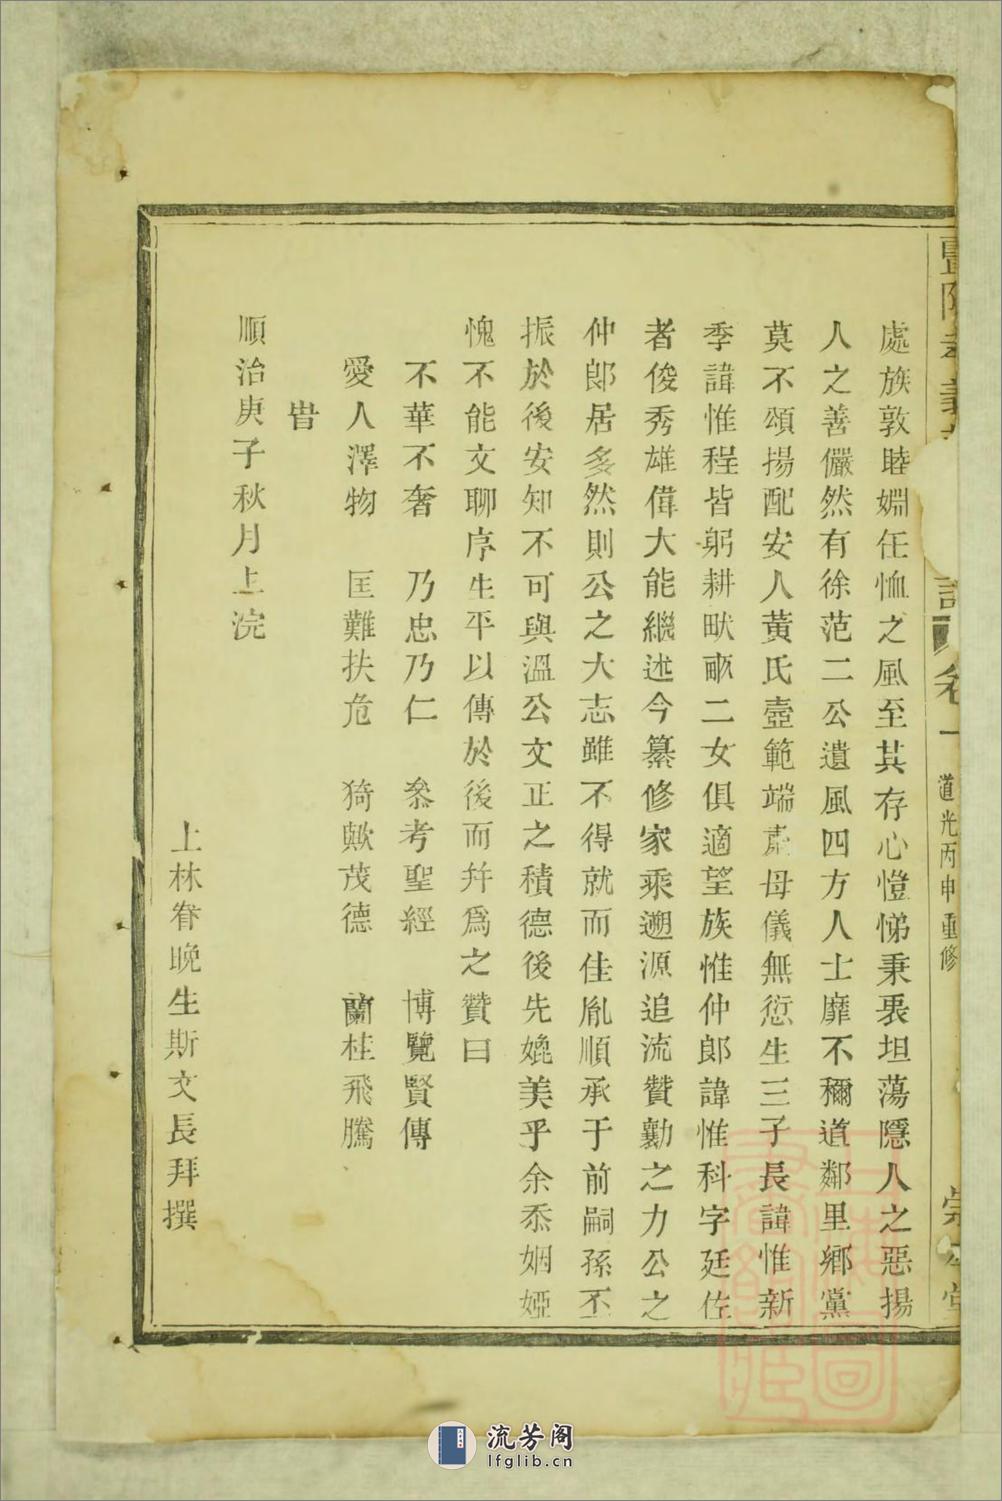 處族敦睦婣任恤之風至其存心愷悌秉彝坦蕩隱人之惡揚
人之善儼然有徐范二公遺風四方人士靡不稱道鄰里鄉黨
莫不頌揚配安人黃氏壼範端肅母儀無愆生三子長諱惟新
季諱惟程皆躬耕畎畝二女俱適望族惟仲郎諱惟科字廷佐
者俊秀雄偉大能繼述今纂修家乘遡源追流贊勷之力公之
仲郎居多然則公之大志雖不得就而佳胤順承于前嗣孫丕
振於後安知不可與溫公文正之積德後先媲美乎余忝姻婭
愧不能文聊序生平以傳於後而幷爲之贊曰
不華不奢 乃忠乃仁 叅考聖經 博覽賢傳
愛人澤物 匡難扶危 猗歟茂德 蘭桂飛騰
旹
順治庚子秋月上浣
上林眷晚生斯文長拜撰
卷一
道光丙申重修
流芳阁
lfglib.cn